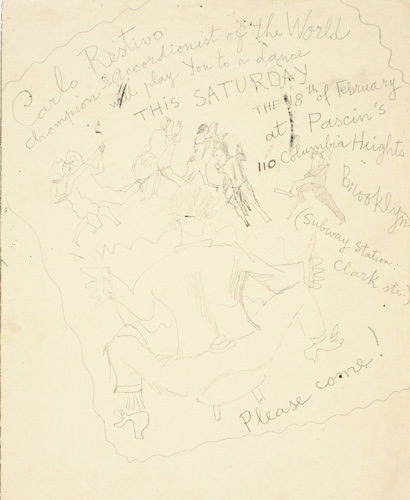 Carlo Restivo
champion accordionist of the World
will play You to a dance
THIS SATURDAY
THE 18th of February
at Pascin's
110 Columbia Heights
Brooklyn
(Subway Station:
Clark str.)
Please come!